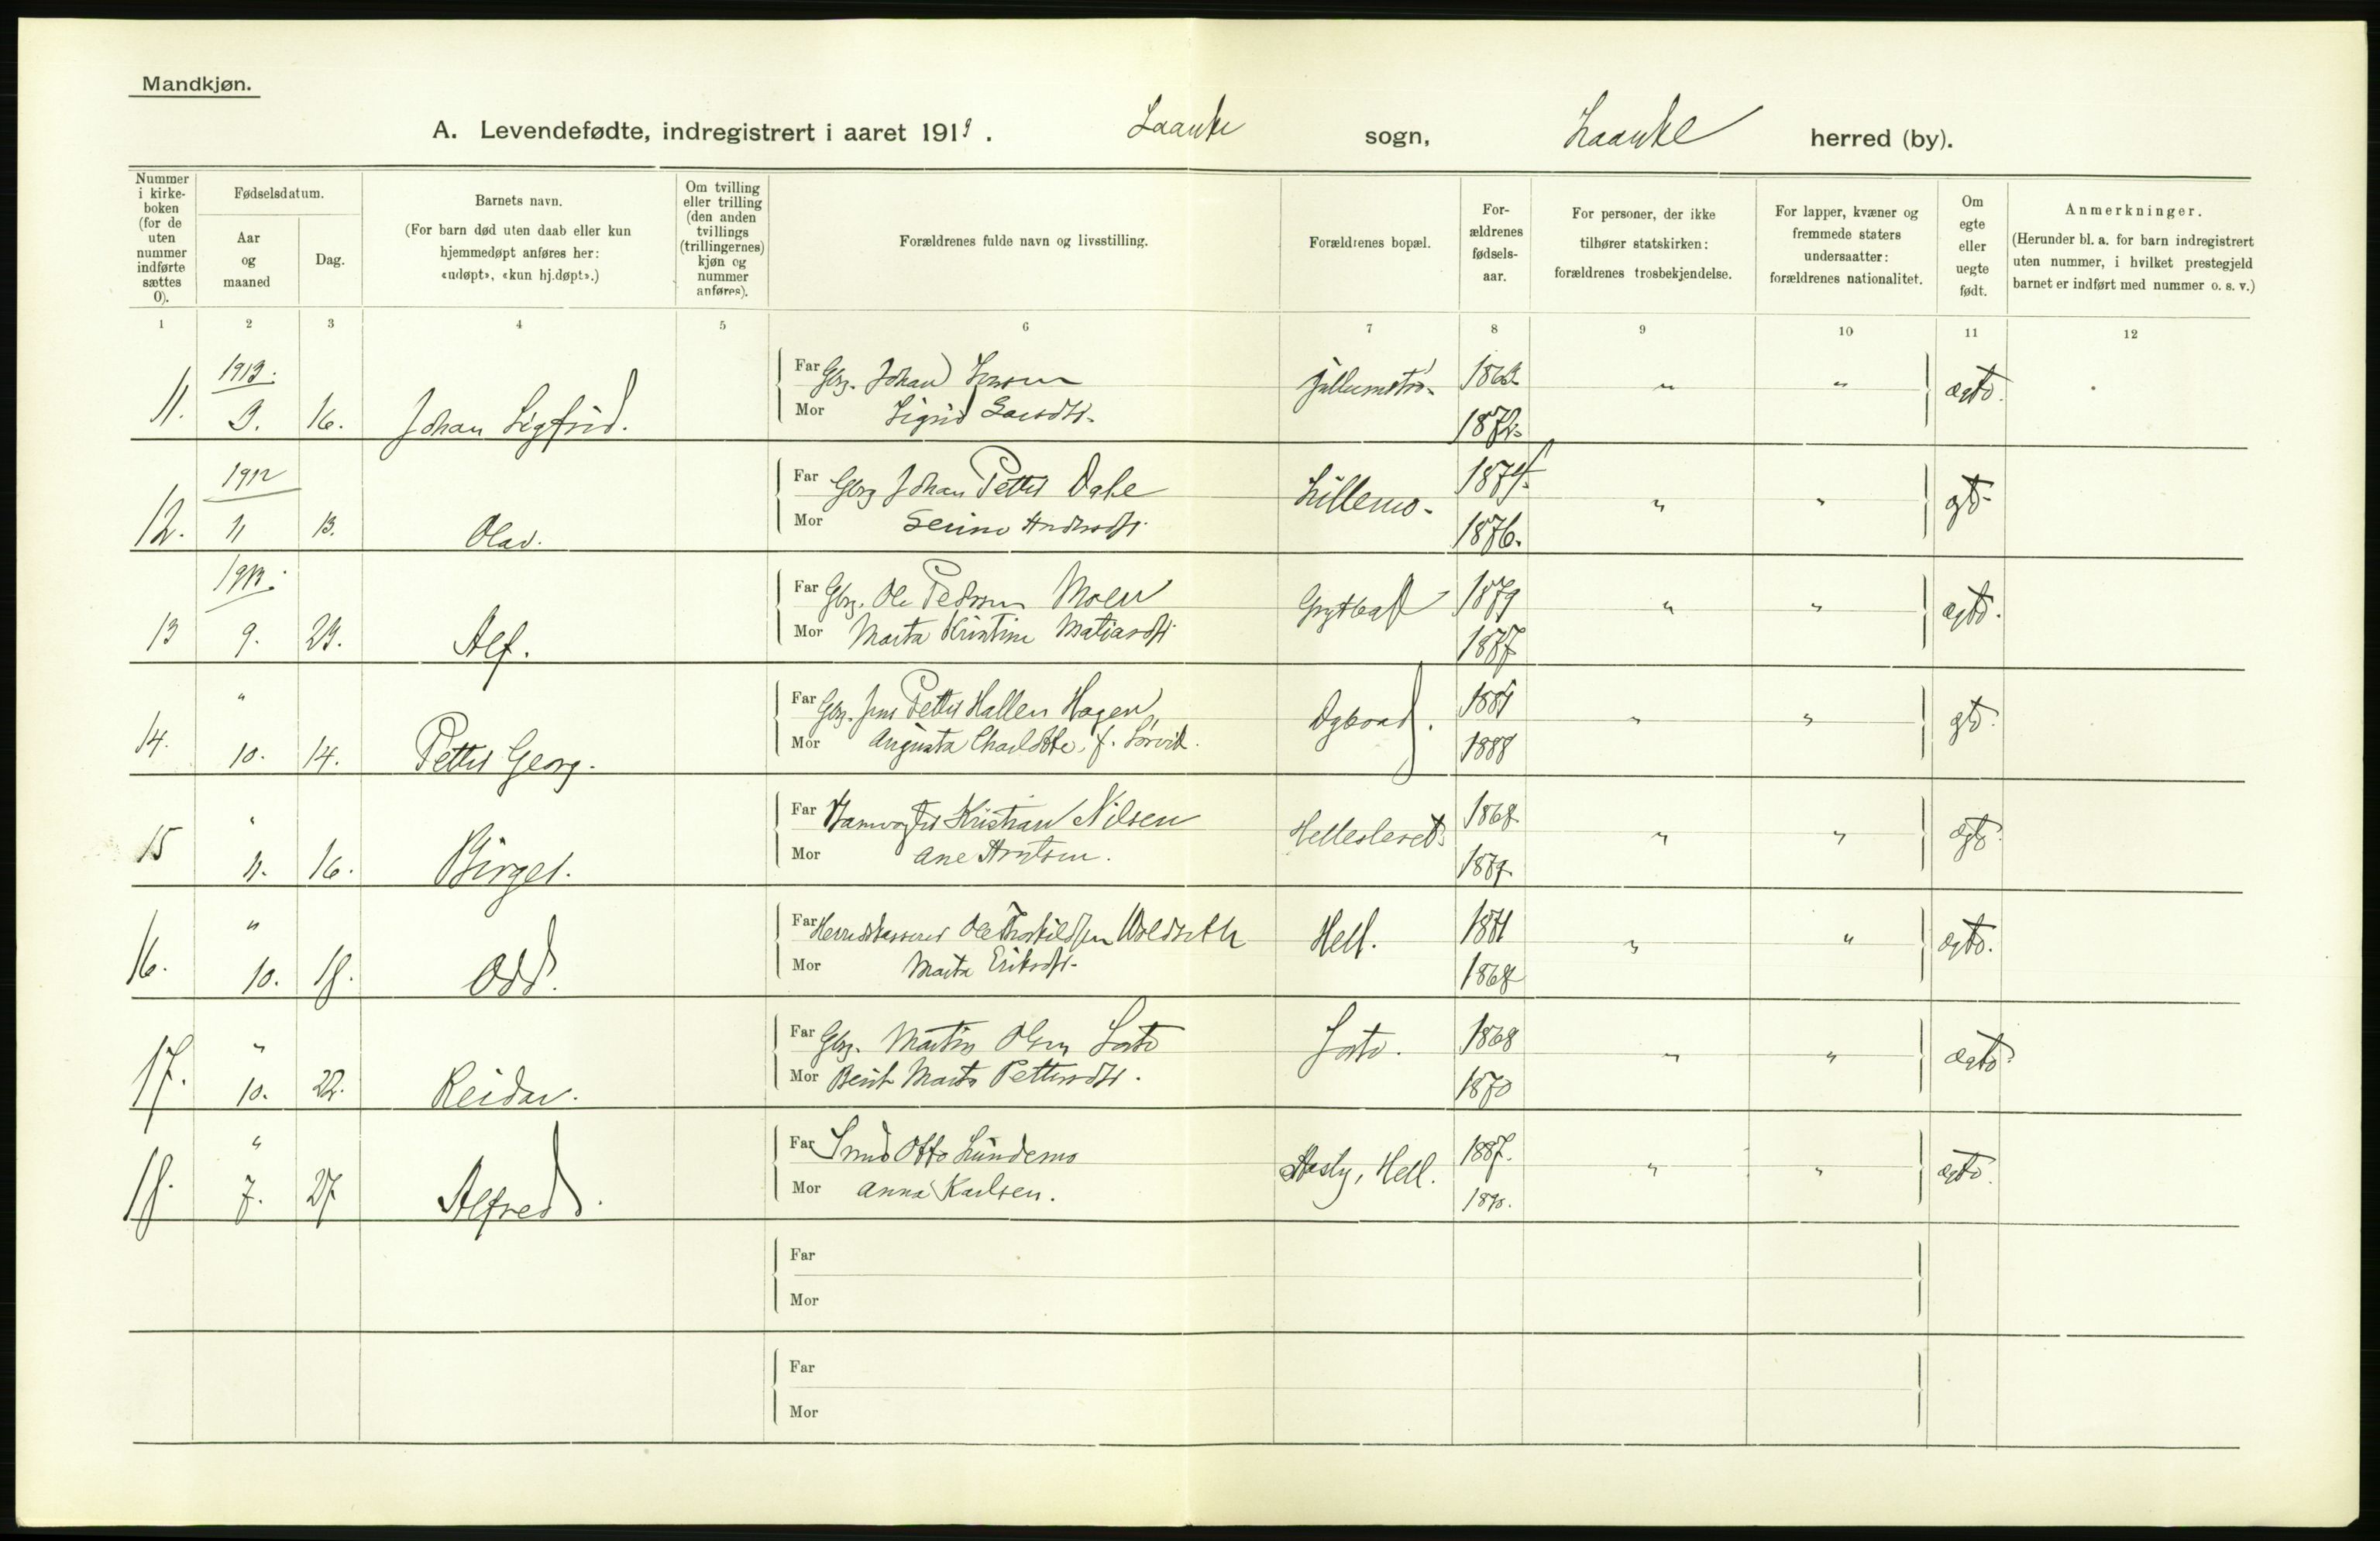 Mandkjøn.
A. Levendefødte, indregistrert i aaret 1913. Laanke sogn, Laanke herred (by).
Nummer i kirke-boken (for de uten nummer indførte sættes 0).
Fødselsdatum.
Aar og maaned
Dag.
Barnets navn.
(For barn død uten daab eller kun hjemmedøpt anføres her: «udøpt», «kun hj.døpt».)
Om tvilling eller trilling (den anden tvillings (trillingernes) kjøn og nummer anføres).
Forældrenes fulde navn og livsstilling.
Forældrenes bopæl.
For-ældrenes fødsels-aar.
For personer, der ikke tilhører statskirken: forældrenes trosbekjendelse.
For lapper, kvæner og fremmede staters undersaatter: forældrenes nationalitet.
Om egte eller uegte født.
Anmerkninger.
(Herunder bl. a. for barn indregistrert uten nummer, i hvilket prestegjeld barnet er indført med nummer o. s. v.)
1 2 3 4 5 6 7 8 9 10 11 12
1913.
Far Gbrg. Johan
11. 9. 16. Johan Sigfrid. Mor Sigrid " " ægte.
1912
Far Gbrg Johan Petter Dahl Lillemo. 1874.
12. 11 13. Olav. Mor 1876. " " gt.
1913.
Far Gbrg. Ole Pedersen Moen 1879
13 9. 29. Alf. Mor Marta Kristine Matiasdtr. 1887 " " ægte.
" Far Gbrg. Jens Petter Hallen Hagen 1881
14. 10. 14. Petter Georg. Mor Augusta Charlotte, f. Sørvik. 1888 " " gt.
" Far Kristian Nilsen 1868
15 11. 16. Birger. Mor Ane Arntsen. " " ægt.
" Far Herredskasserer Ole Torkildsen Woldseth Hell. 1871
16. 10. 18. Odd. Mor Marta Eriksdtr. 1868 " " ægte.
" Far Gbrg. Martin Olsen 1868
17. 10. 22. Reidar. Mor Berit Marta Pettersdtr. 1870 " " ægte.
" Far Smed Otto Lundemo Hell. 1887.
18. 7. 27 Alfred. Mor Anna Karlsen. 1890. " " ægte.
Far
Mor
Far
Mor